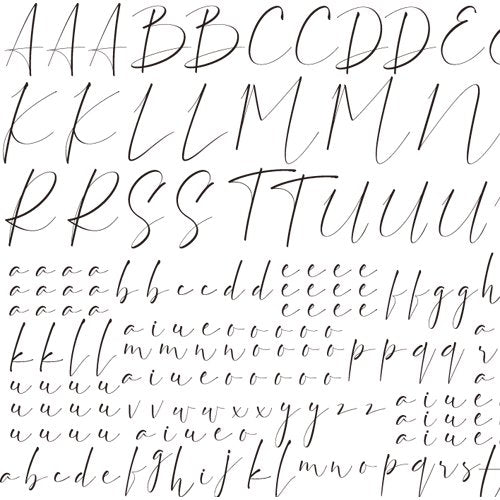 AAABBCCDDE
KKLLMMN
RRSSTTUUU
a a a a e e e e
a a a a b b c c d d e e e e f f g g h
a a a a e e e e
a i u e o o o o o a
k k l l m m m n n o o o o p p q q r
u u u u a i u e o o o o o a
u u u u v v w w x x y y z z a i u e
u u u u a i u e o a i u e
a b c d e f g h i j k l m n o p q r s t